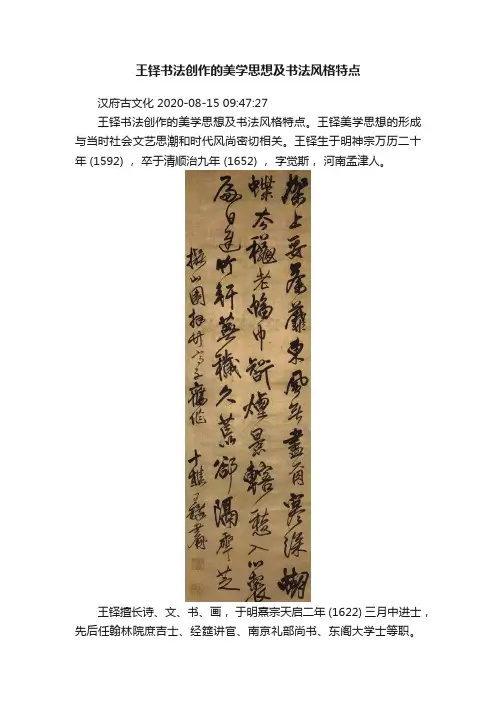 王铎书法创作的美学思想及书法风格特点
汉府古文化 2020-08-15 09:47:27
王铎书法创作的美学思想及书法风格特点。王铎美学思想的形成
与当时社会文艺思潮和时代风尚密切相关。王铎生于明神宗万历二十
年 (1592) ， 卒于清顺治九年 (1652) ， 字觉斯， 河南孟津人。
架上
東風
老幅巾
景
入
日
竹軒蕪穢久荒
隔
芝
擬山園
十樵
王铎擅长诗、文、书、画， 于明熹宗天启二年 (1622) 三月中进士，
先后任翰林院庶吉士、经筵讲官、南京礼部尚书、东阁大学士等职。